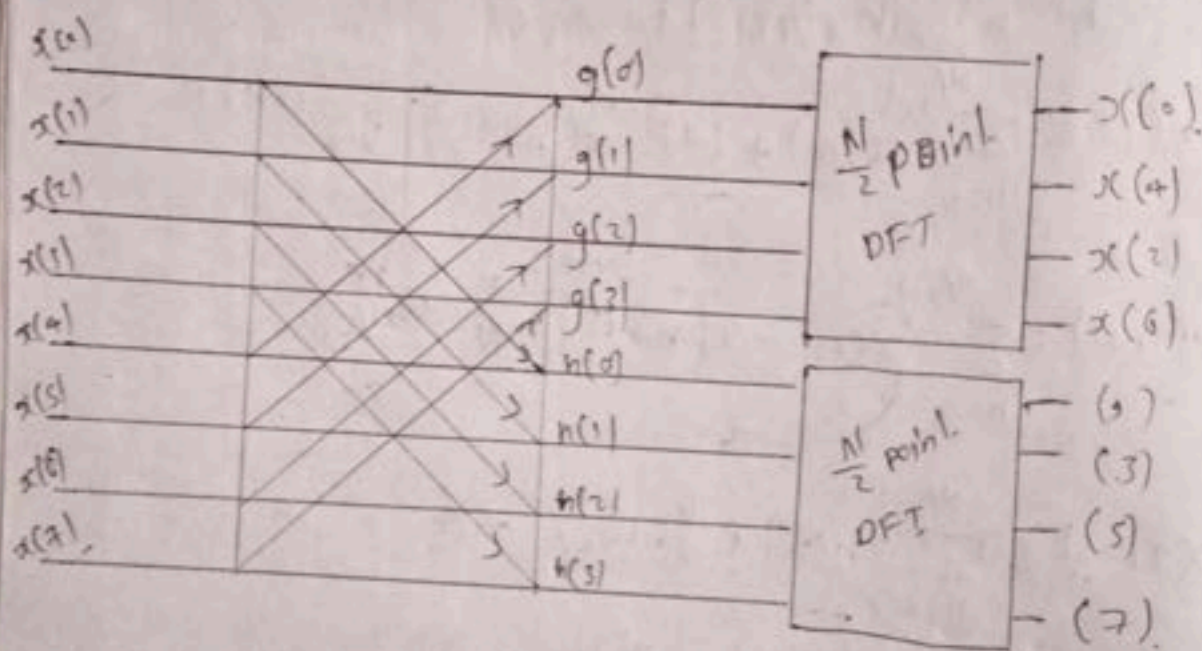 x(0)
x(1)
x(2)
x(3)
x(4)
x(5)
x(6)
x(7)
g(0)
g(1)
g(2)
g(3)
h(0)
h(1)
h(2)
h(3)
N/2 point
DFT
N/2 point
DFT
x(0)
x(4)
x(2)
x(6)
(3)
(5)
(7)